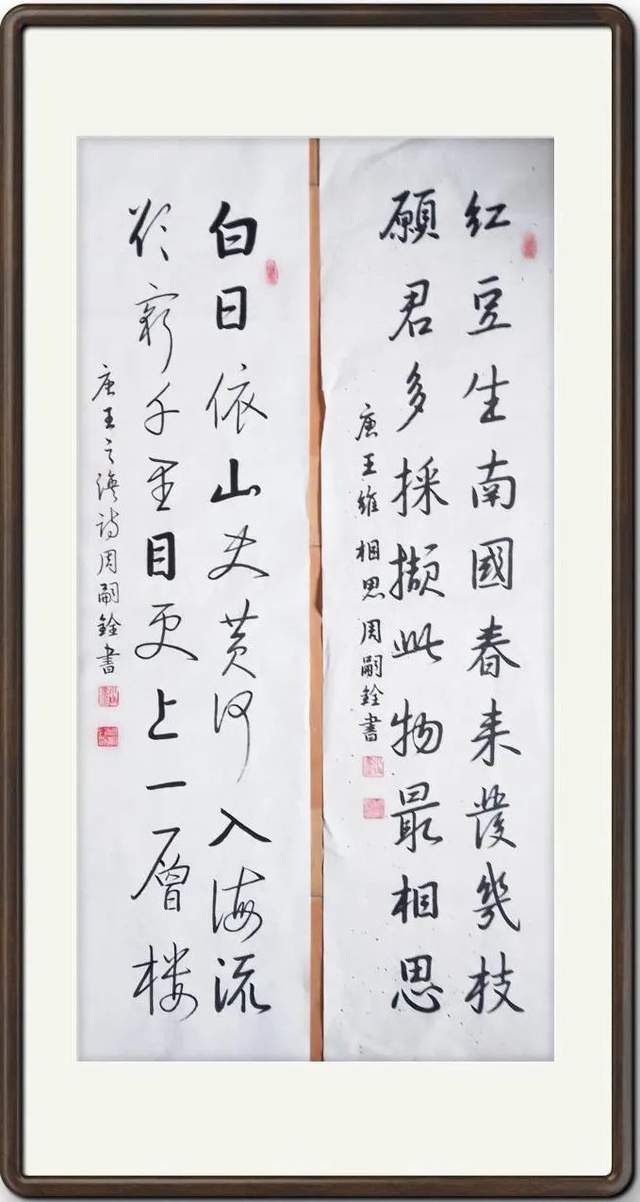 紅豆生南國春来發幾枝
願君多採擷此物最相思
唐王維相思周嗣銓書
白日依山尽黄河入海流
欲窮千里目更上一層楼
唐王之渙詩周嗣銓書